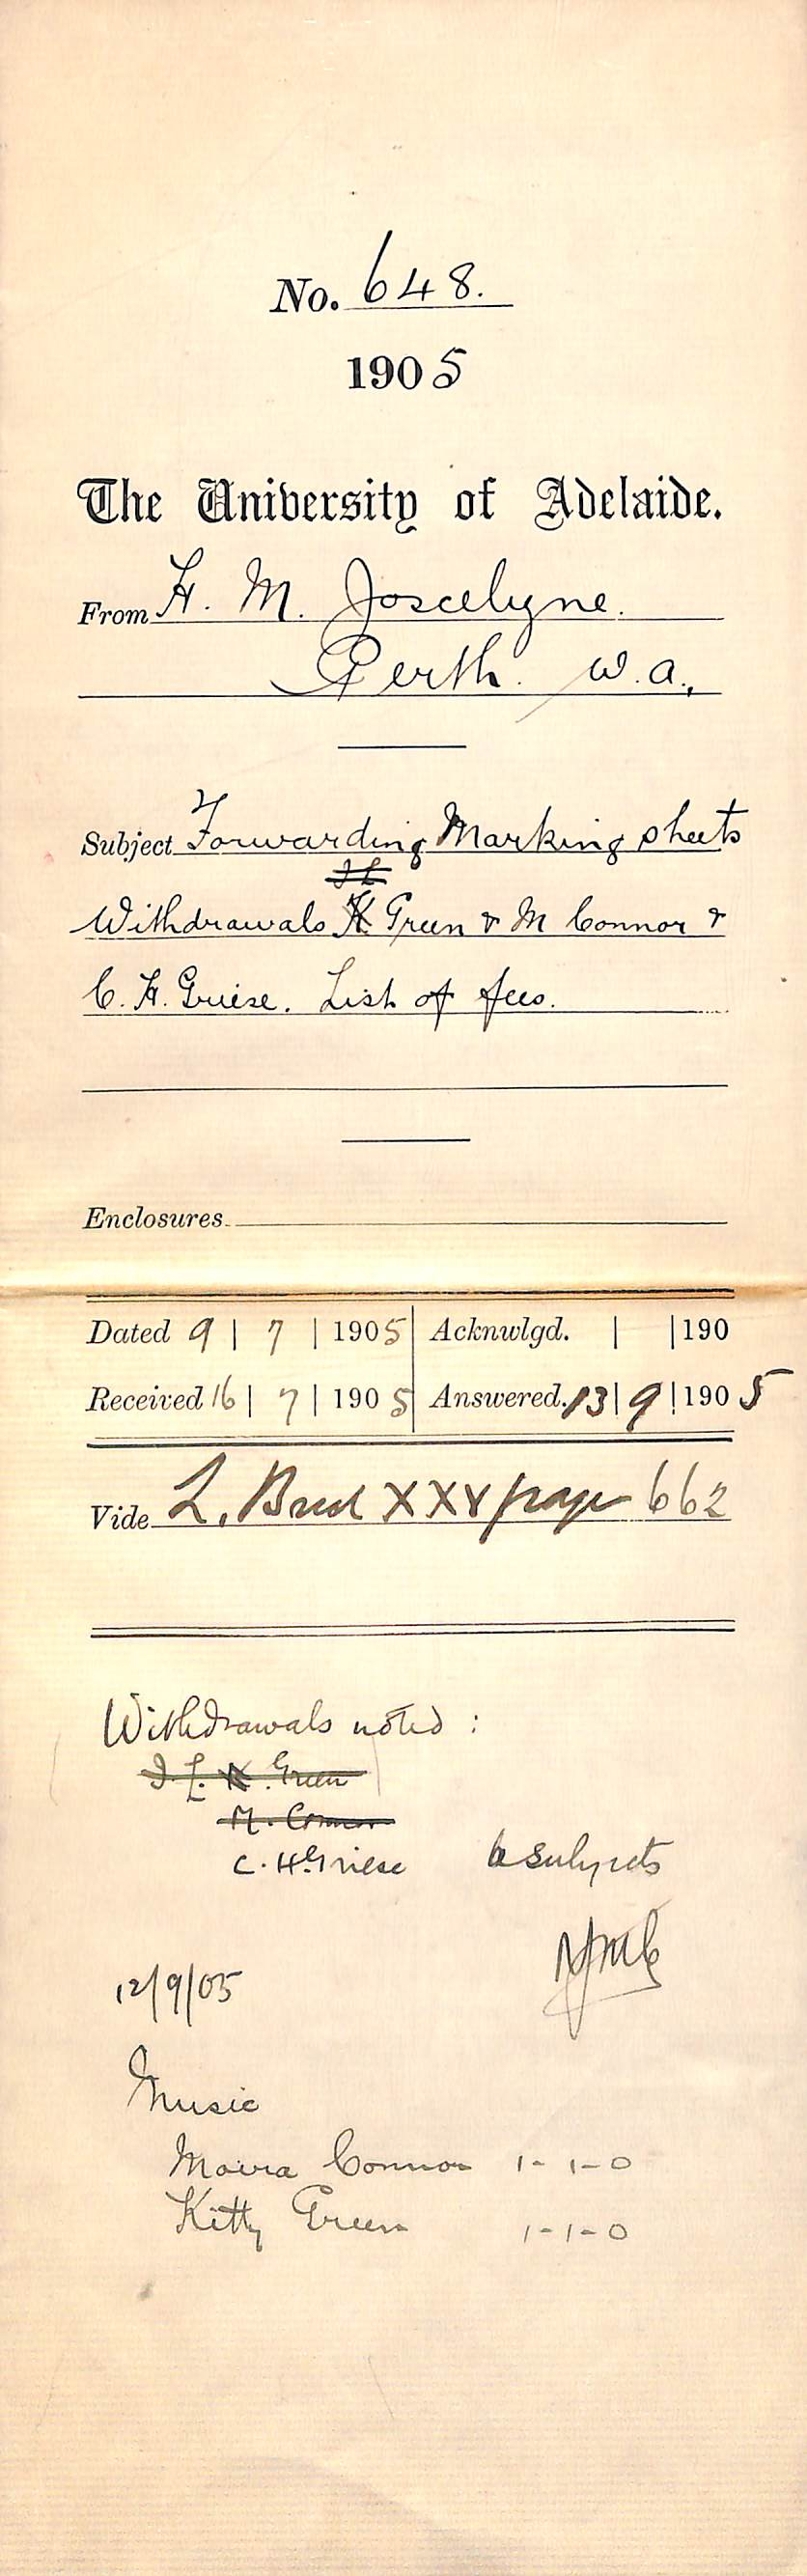 No. 648.
1905
The University of Adelaide.
From H. M. Joscelyne.
Perth. W.A.,
Subject Forwarding Marking sheets
Withdrawals K Green & M Connor &
C. H. Griese. List of fees.
Enclosures
Dated 9 | 7 | 1905 Acknwlgd. | | 190
Received 16 | 7 | 1905 Answered. 13 | 9 | 1905
Vide L. Book XXV page 662
Withdrawals noted :
I. L. K. Green
M. Connor
C. H. Griese 6 subjects
12/9/05
Music
Moira Connor 1-1-0
Kitty Green 1-1-0